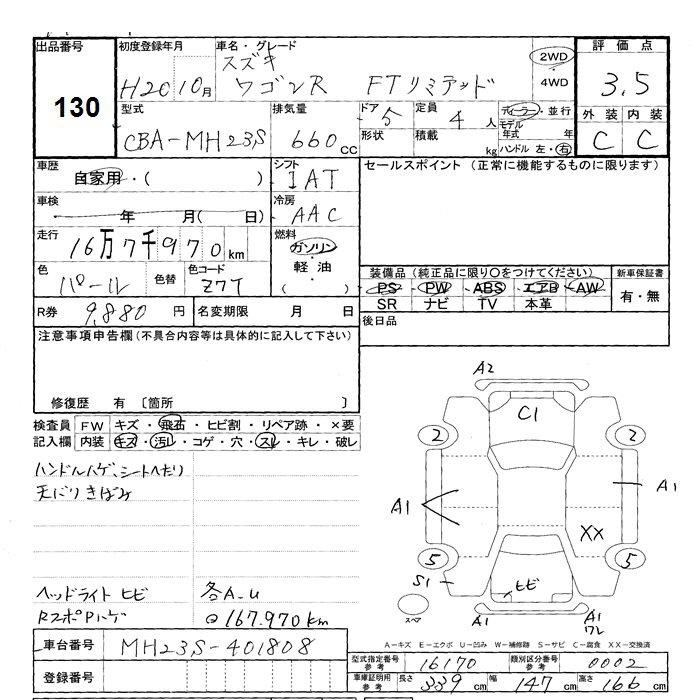 出品番号 初度登録年月 車名・グレード 評価点
130
H20 10月
スズキ
ワゴンR FTリミテッド
2WD
・
4WD
3.5
外装 内装
C C
型式 排気量 ドア 定員 ディーラー・並行
CBA-MH23S 660cc 5 4人 モデル
年式 年
形状 積載 kg ハンドル 左・右
車歴
自家用・( )
シフト
IAT
セールスポイント (正常に機能するものに限ります)
車検
年 月( 日)
冷房
AAC
走行
16万7千970km
燃料
ガソリン
軽油
( )
色 色替 色コード
パール Z7T
装備品(純正品に限り○をつけてください) 新車保証書
PS PW ABS エアB AW
SR ナビ TV 本革
有・無
R券 9,880円 名変期限 月 日
後日品
注意事項申告欄(不具合内容等は具体的に記入して下さい)
修復歴 有 〔箇所 〕
検査員 FW キズ・飛石・ヒビ割・リペア跡・×要
記入欄 内装 キズ・汚レ・コゲ・穴・スレ・キレ・破レ
ハンドルハゲ、シートへたり
天にりきばみ
ヘッドライト ヒビ 各A-U
RスポPハゲ @167.970km
A2
C1
2 2
A1 A1
XX
5 5
S1
ヒビ
スペア
A1 A1
ワレ
A-キズ E-エクボ U-凹み W-補修跡 S-サビ C-腐食 XX-交換済
車台番号 MH23S-401808
登録番号
型式指定番号
参考 16170
類別区分番号
参考 0002
車庫証明用
参考 長さ 339cm 幅 147cm 高さ 166cm